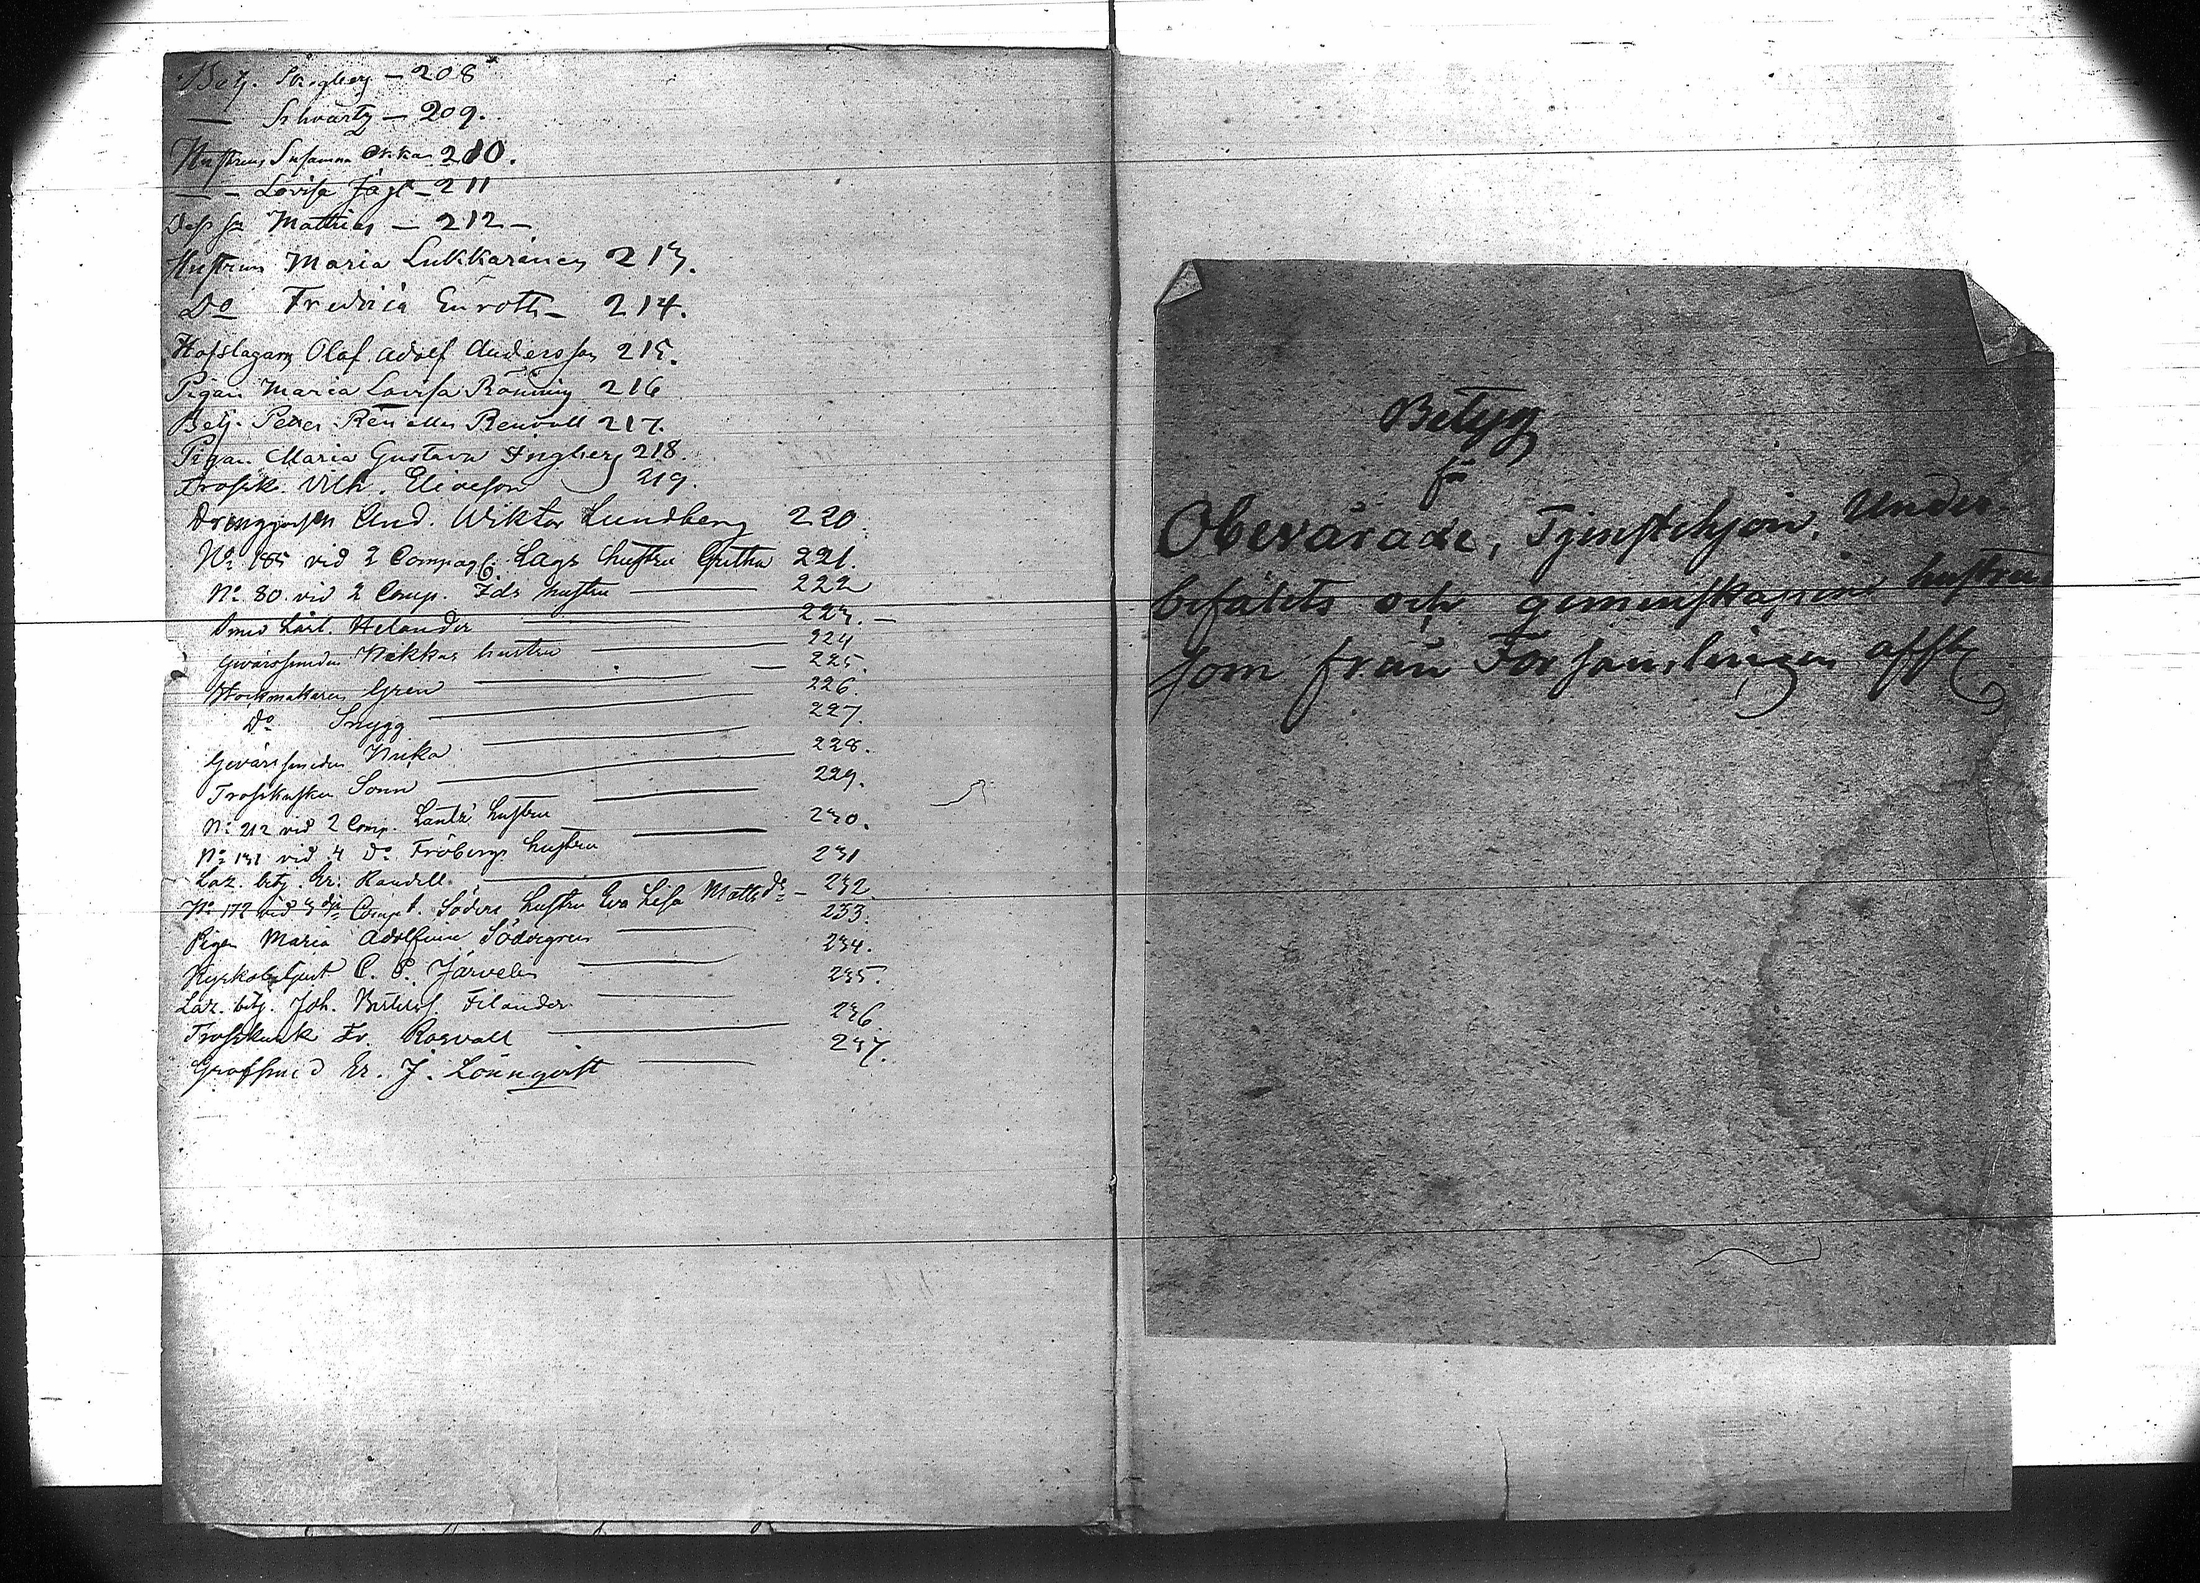 Betj. Stigberg — 208
— Schvartz — 209.
Hustrun Susanna Okka 210.
— – Lovisa Jägt – 211
Dess son Mathias — 212 –
Hustrun Maria Lukkarainen 213.
Do Fredrica Euroth – 214.
Hofslagarn Olof Adolf Andersson 215.
Pigan Maria Lovisa Rönning 216
Betj. Petter Rén eller Renvall 217.
Pigan Maria Gustava Ingberg 218.
Trossk. Vilh. Eliæson 219.
Drenggossen And. Wiktor Lundberg 220.
No 185 vid 2 Compag. Lags hustru Gretha 221.
No 80 vid 2 Comp. Ids hustru — 222
Smed Lärl. Helander — 223. –
Gevärssmeden Nekkas hustru — 224
Stockmakaren Gren — 225.
Do Snygg — 226.
Gevärssmeden Nuka — 227.
Trosskusken Sonn — 228.
No 212 vid 2 Comp. Lantz hustru — 229.
No 131 vid 4 Do Fröbergs hustru — 230.
Laz. betj. Er. Randell — 231
No 172 vid 3dje Comp. Söders hustru Eva Lisa Mattsdr – 232
Pigan Maria Adolfina Södergren — 233.
Kyrkobetjent C. P. Järvelin — 234.
Laz. betj. Joh. Filander — 235.
Trosskusk Fr. Rosvall — 236
Grofsmed Er. J. Lönnqvist — 237.
Betyg
för
Obevärade, Tjenstehjon, Under-
befälets och gemenskapens hustrur
som från Församlingen afflytt